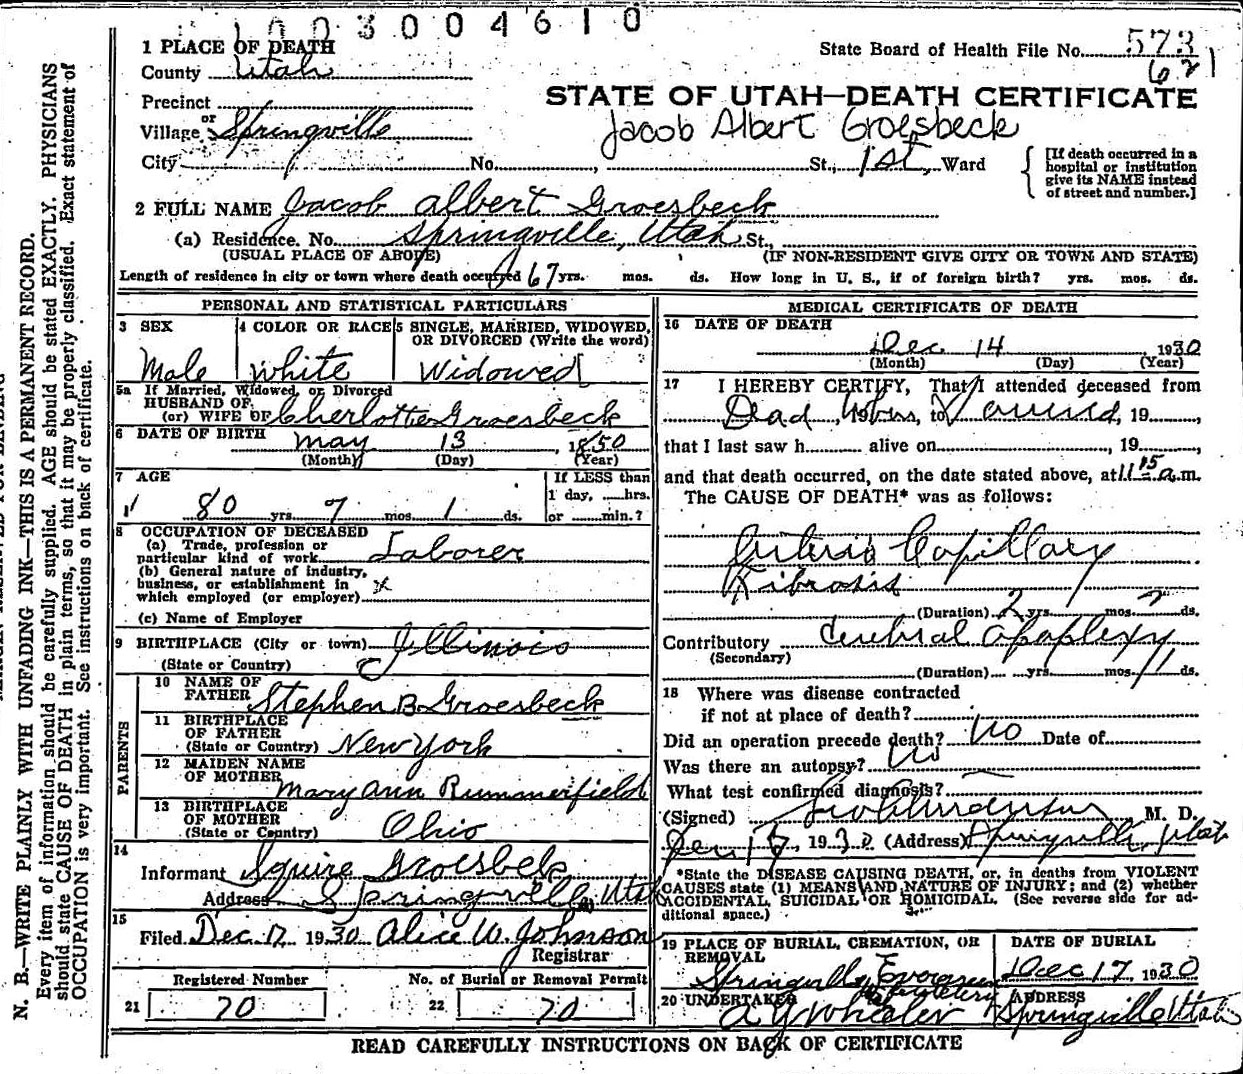 1003004610
1 PLACE OF DEATH
State Board of Health File No. 573
County Utah
621
Precinct
STATE OF UTAH—DEATH CERTIFICATE
or
Village Springville
Jacob Albert Groesbeck
City No. St., 1st, Ward
[If death occurred in a hospital or institution give its NAME instead of street and number.]
2 FULL NAME Jacob Albert Groesbeck
(a) Residence. No. Springville, Utah St.,
(USUAL PLACE OF ABODE) (IF NON-RESIDENT GIVE CITY OR TOWN AND STATE)
Length of residence in city or town where death occurred 67 yrs. mos. ds. How long in U. S., if of foreign birth? yrs. mos. ds.
PERSONAL AND STATISTICAL PARTICULARS
3 SEX 4 COLOR OR RACE 5 SINGLE, MARRIED, WIDOWED,
OR DIVORCED (Write the word)
Male White Widowed
5a If Married, Widowed, or Divorced
HUSBAND OF
(or) WIFE OF Cherlotte Groesbeck
6 DATE OF BIRTH May 13, 1850
(Month) (Day) (Year)
7 AGE If LESS than
1 day, hrs.
80 yrs. 7 mos. 1 ds. or min.?
8 OCCUPATION OF DECEASED
(a) Trade, profession or
particular kind of work Laborer
(b) General nature of industry,
business, or establishment in
which employed (or employer)
(c) Name of Employer
9 BIRTHPLACE (City or town) Illinois
(State or Country)
PARENTS
10 NAME OF
FATHER Stephen B. Groesbeck
11 BIRTHPLACE
OF FATHER
(State or Country) New York
12 MAIDEN NAME
OF MOTHER
Mary Ann Rummerfield
13 BIRTHPLACE
OF MOTHER
(State or Country) Ohio
14
Informant Squire Groesbeck
Address Springville, Utah
15
Filed Dec 17 1930 Alice W. Johnson
Registrar
Registered Number No. of Burial or Removal Permit
21 70 22 70
MEDICAL CERTIFICATE OF DEATH
16 DATE OF DEATH
Dec 14 1930
(Month) (Day) (Year)
17 I HEREBY CERTIFY, That I attended deceased from
Dead, When, to I arrived, 19
that I last saw h alive on, 19
and that death occurred, on the date stated above, at 11 15 a.m.
The CAUSE OF DEATH* was as follows:
Arterio Capillary
Fibrosis
(Duration) 2 yrs. mos. ? ds.
Contributory Cerebral Apoplexy
(Secondary)
(Duration) yrs. mos. 11 ds.
18 Where was disease contracted
if not at place of death?
Did an operation precede death? No Date of
Was there an autopsy? No
What test confirmed diagnosis?
(Signed) M. D.
19 30 (Address) Springville, Utah
*State the DISEASE CAUSING DEATH, or, in deaths from VIOLENT
CAUSES state (1) MEANS AND NATURE OF INJURY; and (2) whether
ACCIDENTAL, SUICIDAL OR HOMICIDAL. (See reverse side for ad-
ditional space.)
19 PLACE OF BURIAL, CREMATION, OR
REMOVAL
Springville Evergreen
Cemetery
DATE OF BURIAL
Dec 17, 1930
20 UNDERTAKER
A Y Wheeler
ADDRESS
Springville Utah
READ CAREFULLY INSTRUCTIONS ON BACK OF CERTIFICATE
N. B.—WRITE PLAINLY WITH UNFADING INK—THIS IS A PERMANENT RECORD.
Every item of information should be carefully supplied. AGE should be stated EXACTLY. PHYSICIANS
should state CAUSE OF DEATH in plain terms, so that it may be properly classified. Exact statement of
OCCUPATION is very important. See instructions on back of certificate.